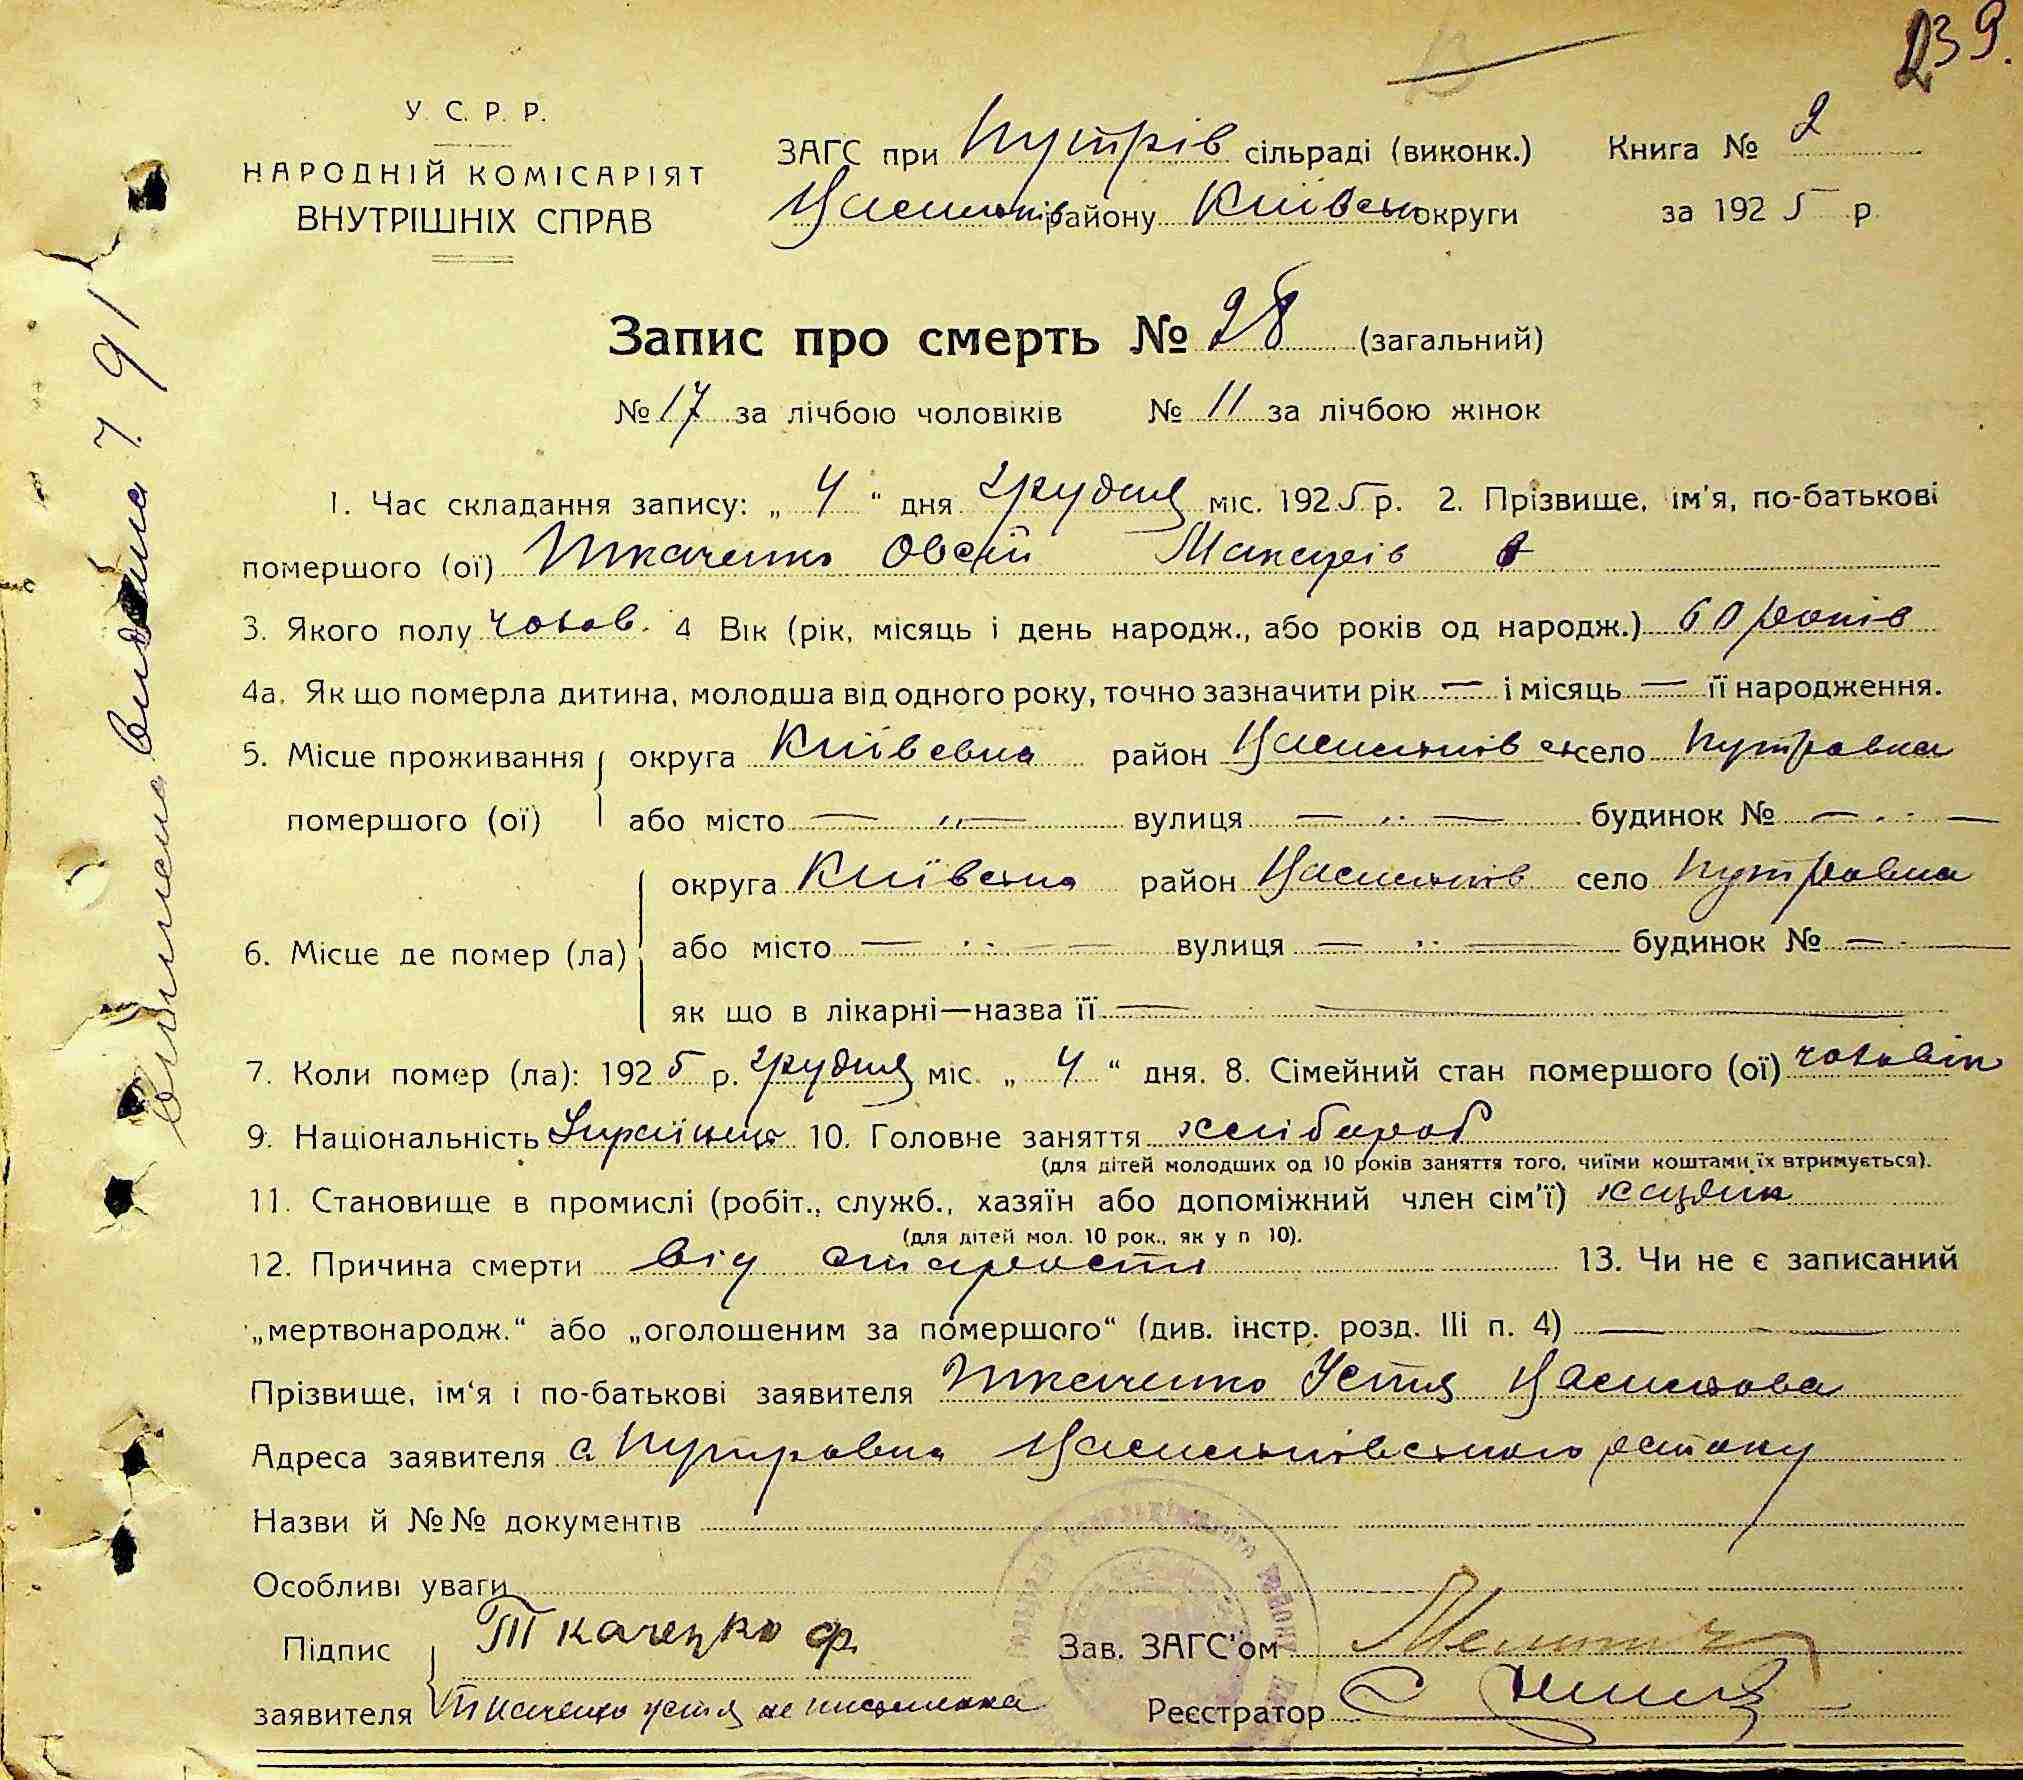 239.
У. С. Р. Р.
НАРОДНІЙ КОМІСАРІЯТ
ВНУТРІШНІХ СПРАВ
ЗАГС при Путрів сільраді (виконк.)
Книга № 2
району Київськ округи
за 1925 р.
Запис про смерть № 28 (загальний)
№ 17 за лічбою чоловіків № 11 за лічбою жінок
1. Час складання запису: „ 4 “ дня грудня міс. 1925 р. 2. Прізвище, ім'я, по-батькові
помершого (ої) Ткаченко Овсій
3. Якого полу чолов. 4 Вік (рік, місяць і день народж., або років од народж.) 60 років
4а. Як що померла дитина, молодша від одного року, точно зазначити рік — і місяць — її народження.
5. Місце проживання округа Київсвка район село Путровка
помершого (ої) або місто — „ — вулиця — „ — будинок № — „ —
6. Місце де помер (ла)
округа Київська район село Путровка
або місто — „ — вулиця — „ — будинок № — „ —
як що в лікарні—назва її —
7. Коли помер (ла): 1925 р. грудня міс. „ 4 “ дня. 8. Сімейний стан помершого (ої) чоловік
9. Національність Українець 10. Головне заняття хлібороб
(для дітей молодших од 10 років заняття того, чиїми коштами їх втримується).
11. Становище в промислі (робіт., служб., хазяїн або допоміжний член сім'ї) хазяин
(для дітей мол. 10 рок., як у п 10).
12. Причина смерти від старости 13. Чи не є записаний
„мертвонародж.“ або „оголошеним за помершого“ (див. інстр. розд. III п. 4) —
Прізвище, ім'я і по-батькові заявителя Ткаченко Устя
Адреса заявителя с. Путровка району
Назви й №№ документів
Особливі уваги
Підпис Ткаченко ф.
заявителя Ткаченко устя не письменна
Зав. ЗАГС'ом
Реєстратор